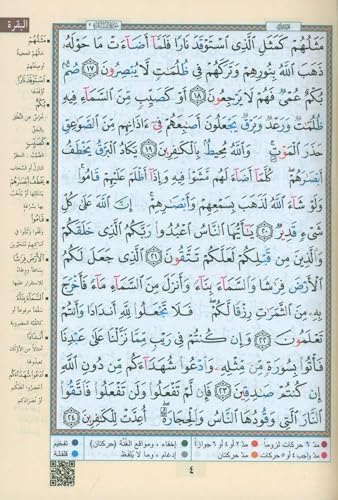 البقرة
مَثَلُهُمْ كَمَثَلِ ٱلَّذِى ٱسْتَوْقَدَ نَارًا فَلَمَّآ أَضَآءَتْ مَا حَوْلَهُۥ
ذَهَبَ ٱللَّهُ بِنُورِهِمْ وَتَرَكَهُمْ فِى ظُلُمَٰتٍ لَّا يُبْصِرُونَ ١٧ صُمٌّۢ
بُكْمٌ عُمْىٌ فَهُمْ لَا يَرْجِعُونَ ١٨ أَوْ كَصَيِّبٍ مِّنَ ٱلسَّمَآءِ فِيهِ
ظُلُمَٰتٌ وَرَعْدٌ وَبَرْقٌ يَجْعَلُونَ أَصَٰبِعَهُمْ فِىٓ ءَاذَانِهِم مِّنَ ٱلصَّوَٰعِقِ
حَذَرَ ٱلْمَوْتِ ۚ وَٱللَّهُ مُحِيطٌۢ بِٱلْكَٰفِرِينَ ١٩ يَكَادُ ٱلْبَرْقُ يَخْطَفُ
أَبْصَٰرَهُمْ ۖ كُلَّمَآ أَضَآءَ لَهُم مَّشَوْا۟ فِيهِ وَإِذَآ أَظْلَمَ عَلَيْهِمْ قَامُوا۟ ۚ
وَلَوْ شَآءَ ٱللَّهُ لَذَهَبَ بِسَمْعِهِمْ وَأَبْصَٰرِهِمْ ۚ إِنَّ ٱللَّهَ عَلَىٰ كُلِّ
شَىْءٍ قَدِيرٌ ٢٠ يَٰٓأَيُّهَا ٱلنَّاسُ ٱعْبُدُوا۟ رَبَّكُمُ ٱلَّذِى خَلَقَكُمْ
وَٱلَّذِينَ مِن قَبْلِكُمْ لَعَلَّكُمْ تَتَّقُونَ ٢١ ٱلَّذِى جَعَلَ لَكُمُ
ٱلْأَرْضَ فِرَٰشًا وَٱلسَّمَآءَ بِنَآءً وَأَنزَلَ مِنَ ٱلسَّمَآءِ مَآءً فَأَخْرَجَ
بِهِۦ مِنَ ٱلثَّمَرَٰتِ رِزْقًا لَّكُمْ ۖ فَلَا تَجْعَلُوا۟ لِلَّهِ أَندَادًا وَأَنتُمْ
تَعْلَمُونَ ٢٢ وَإِن كُنتُمْ فِى رَيْبٍ مِّمَّا نَزَّلْنَا عَلَىٰ عَبْدِنَا
فَأْتُوا۟ بِسُورَةٍ مِّن مِّثْلِهِۦ وَٱدْعُوا۟ شُهَدَآءَكُم مِّن دُونِ ٱللَّهِ
إِن كُنتُمْ صَٰدِقِينَ ٢٣ فَإِن لَّمْ تَفْعَلُوا۟ وَلَن تَفْعَلُوا۟ فَٱتَّقُوا۟
ٱلنَّارَ ٱلَّتِى وَقُودُهَا ٱلنَّاسُ وَٱلْحِجَارَةُ ۖ أُعِدَّتْ لِلْكَٰفِرِينَ ٢٤
مَثَلُهُمْ
اسْتَوْقَدَ نَارًا
بُكْمٌ
كَصَيِّبٍ
يَخْطَفُ أَبْصَارَهُمْ
قَامُوا
الْأَرْضَ فِرَاشًا
السَّمَاءَ بِنَاءً
أَنْدَادًا
ادْعُوا شُهَدَاءَكُمْ
مدّ ٦ حركات لزوماً
مدّ ٢ أو ٤ أو ٦ جوازاً
إخفاء، ومواقع الغُنَّة (حركتان)
تفخيم
مدّ واجب ٤ أو ٥ حركات
مدّ حركتان
إدغام، وما لا يُلفَظ
قلقلة
٤